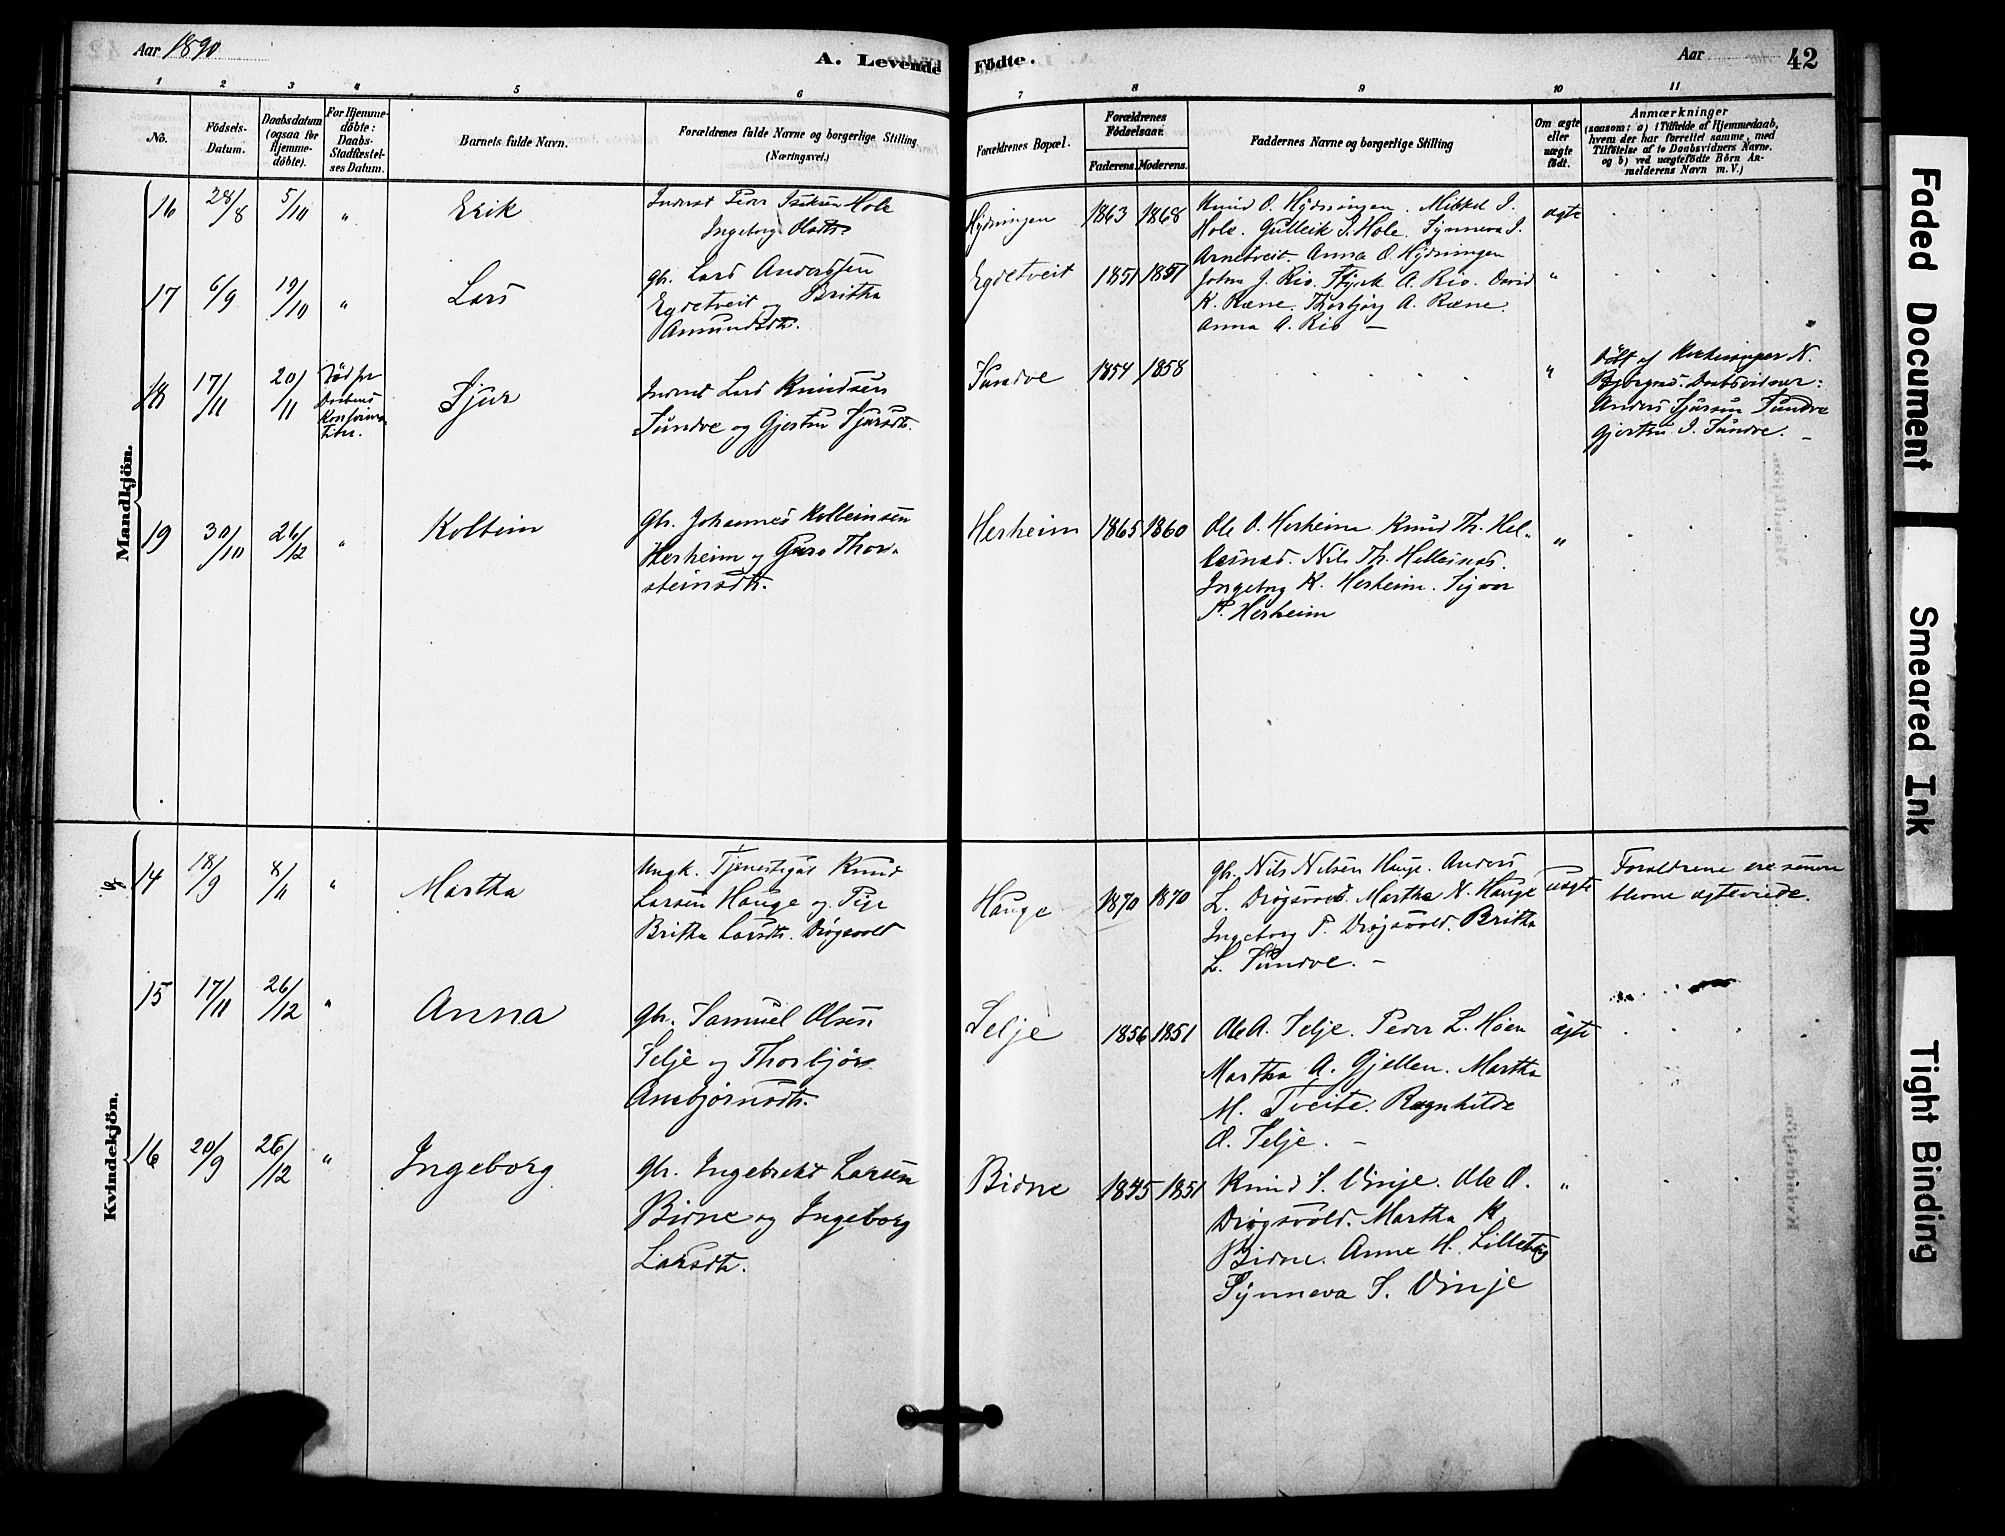 Aar 1890
A. Levende Födte.
Aar
42
1 2 3 4 5 6 7 8 9 10 11
No.
Födsels-Datum.
Daabsdatum (ogsaa for Hjemme-döbte).
For Hjemme-döbte: Daabs-Stadfæstel-ses Datum.
Barnets fulde Navn.
Forældrenes fulde Navne og borgerlige Stilling
(Næringsvei.)
Forældrenes Bopæl.
Forældrenes Födselsaar.
Faderens. Moderens.
Faddernes Navne og borgerlige Stilling
Om ægte eller uægte födt.
Anmærkninger
(saasom: a) i Tilfælde af Hjemmedaab,
hvem der har forrettet samme, med
Tilföielse af to Daabsvidners Navne.
og b) ved uægtefödte Börn An-
melderens Navn m. V.)
Mandkjön.
16 28/8 5/10 " Erik
Inderst Peder Isaksen Hole
Ingeborg Olsdtr.
Hydningen 1863 1868
Knud O. Hydningen. Mikkel I.
Hole. Gulleik I. Hole. Synneva I.
Arnetveit. Anna O. Hydningen
ægte
17 6/9 19/10 " Lars
gbr. Lars Anderssen
Egdetveit og Britha
Amundsdtr.
Egdetveit 1851 1857
John J. Rio. Styrk A. Rio. David
K. Ræne. Thorbjørg A. Ræne.
Anna A. Rio –
"
18 17/11 20/11
Død før
Daabens
Konfirma-
tion.
Sjur
Inderst Lars Knudsen
Sundve og Gjertru Sjursdtr.
Sundve 1854 1858
"
Døbt af Kirkesanger N.
Bjørgas. Daabsvidner:
Anders Sjursen Sundve
Gjertru I. Sundve. –
19 30/10 26/12 " Kolbein
Gbr. Johannes Kolbeinsen
Herheim og Guro Thor-
steinsdtr.
Herheim 1865 1860
Ole O. Herheim Knud Th. Hel-
lesnes. Nils Th. Hellesnes.
Ingeborg K. Herheim. Sigvor
P. Herheim
"
Kvindekjön.
14 18/9 8/11 " Martha
Ungk. Tjenestegut Knud
Larsen Hauge og Pige
Britha Larsdtr. Drøgsvold
Hauge 1870 1870
gbr. Nils Nilsen Hauge. Anders
L. Drøgsvold. Martha N. Hauge
Ingeborg P. Drøgsvold. Britha
L. Sundve. –
uægte
Forældrene ere senere
blevne ægteviede.
15 17/11 26/12 " Anna
gbr. Samuel Olsen
Selje og Thorbjør
Ansbjørnsdtr.
Selje 1856 1851
Ole A. Selje. Peder L. Høen
Martha A. Gjellen. Martha
M. Tveite. Ragnhilde
O. Selje. –
ægte
16 20/9 26/12 " Ingeborg
gbr. Ingebrekt Larsen
Bidne og Ingeborg
Larsdtr.
Bidne 1845 1851
Knud S. Vinje. Ole O.
Drøgsvold. Martha K
Bidne. Anne H. Lilletveit
Synneva S. Vinje
"
Faded Document
Smeared Ink
Tight Binding